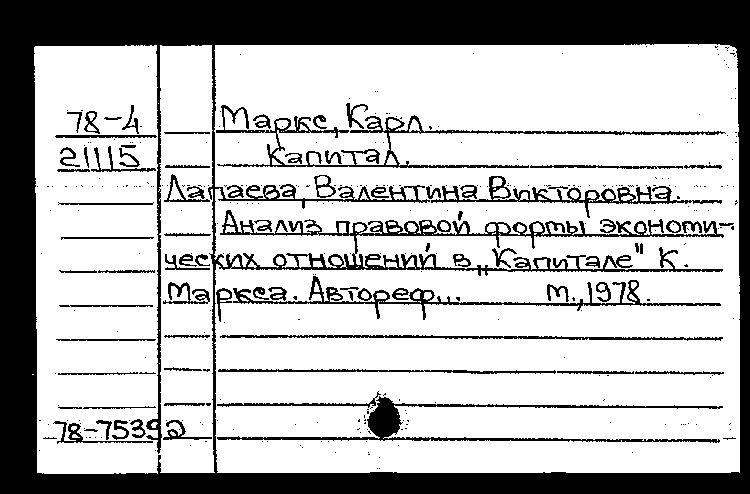 78-4 Маркс, Карл.
21115 Капитал.
Лапаева, Валентина Викторовна.
Анализ правовой формы экономи-
ческих отношений в „Капитале" К.
Маркса. Автореф... М., 1978.
78-7539а